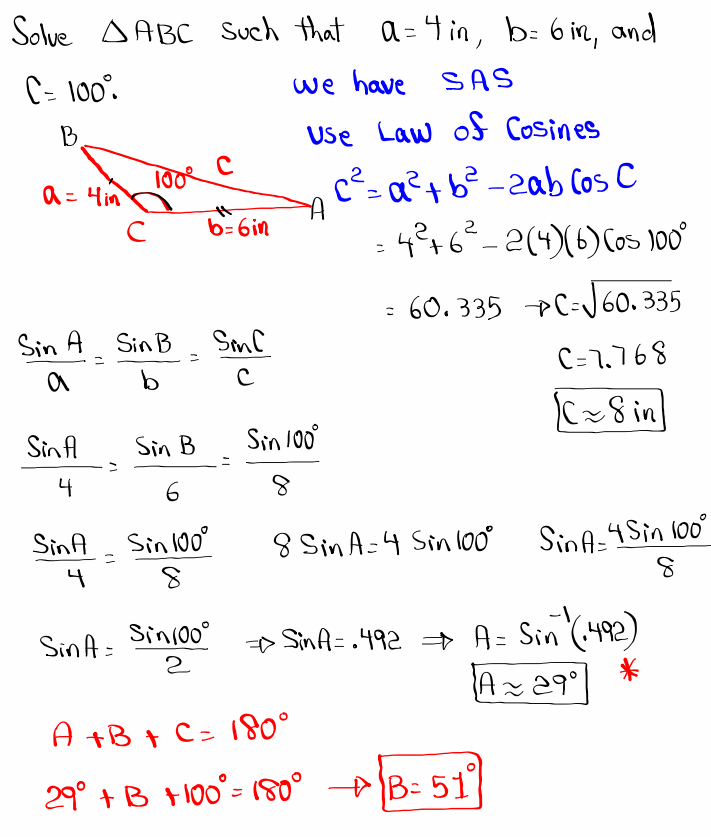 Solve △ABC such that a=4in, b=6in, and
C=100°.
we have SAS
Use Law of Cosines
B
100°
c
a=4in
A
C
b=6in
c²=a²+b²-2ab Cos C
=4²+6²-2(4)(6)Cos 100°
=60.335 → C=√60.335
C=7.768
C≈8in
Sin A/a = Sin B/b = Sin C/c
Sin A/4 = Sin B/6 = Sin 100°/8
Sin A/4 = Sin 100°/8 8 Sin A=4 Sin 100° Sin A=4 Sin 100°/8
Sin A= Sin 100°/2 ⇒ Sin A=.492 ⇒ A=Sin⁻¹(.492)
A≈29° *
A+B+C=180°
29°+B+100°=180° → B=51°